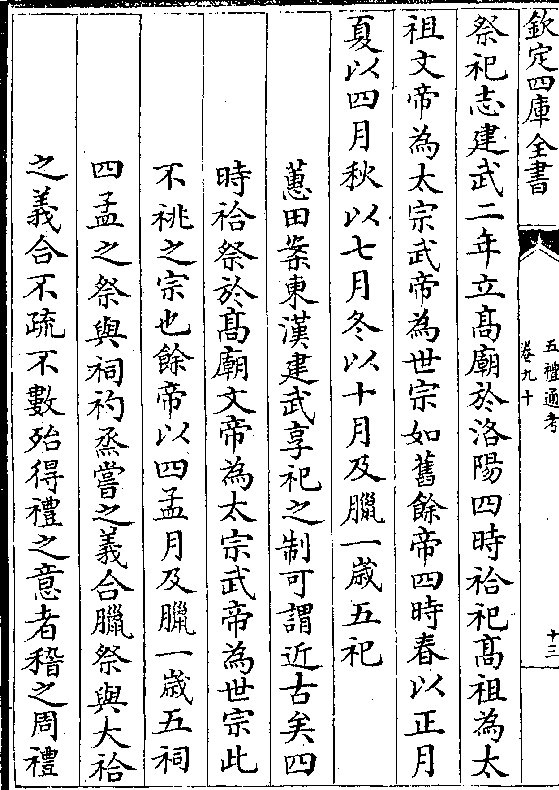 欽定四庫全書
五禮通考
卷九十
十三
祭祀志建武二年立髙廟於洛陽四時祫祀髙祖為太
祖文帝為太宗武帝為世宗如舊餘帝四時春以正月
夏以四月秋以七月冬以十月及臘一歲五祀
蕙田案東漢建武享祀之制可謂近古矣四
時祫祭於髙廟文帝為太宗武帝為世宗此
不祧之宗也餘帝以四孟月及臘一歲五祠
四孟之祭與祠礿烝嘗之義合臘祭與大祫
之義合不疏不數殆得禮之意者稽之周禮